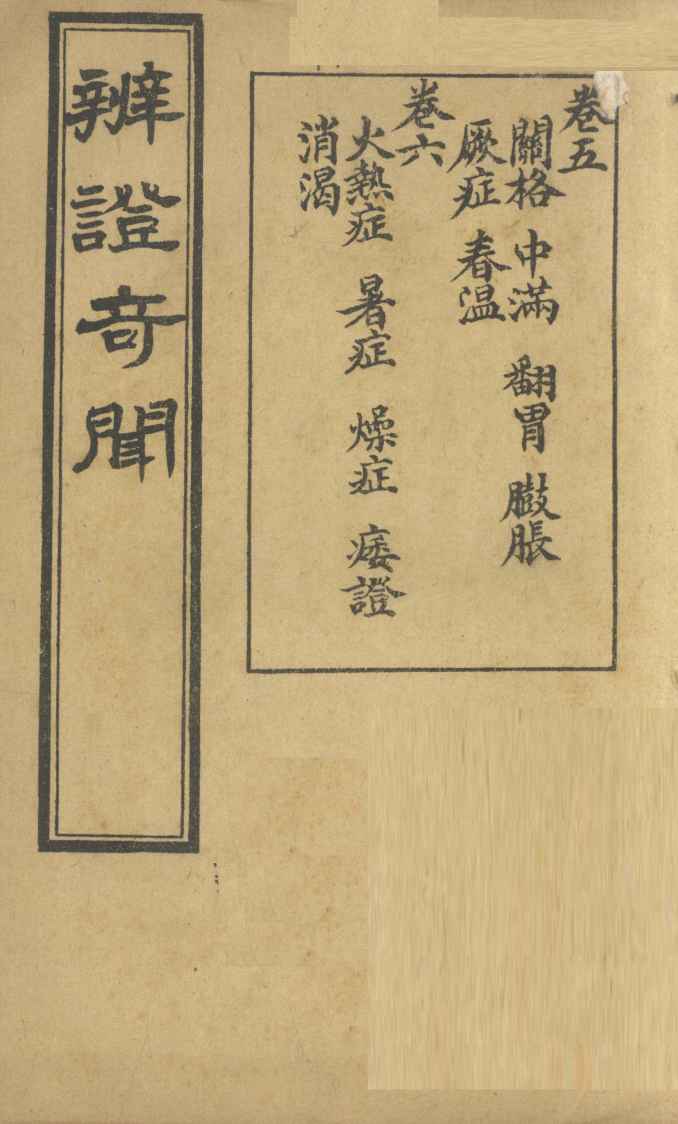 卷五
關格 中滿 翻胃 臌脹
厥症 春温
卷六
火熱症 暑症 燥症 痿證
消渴
辨證奇聞